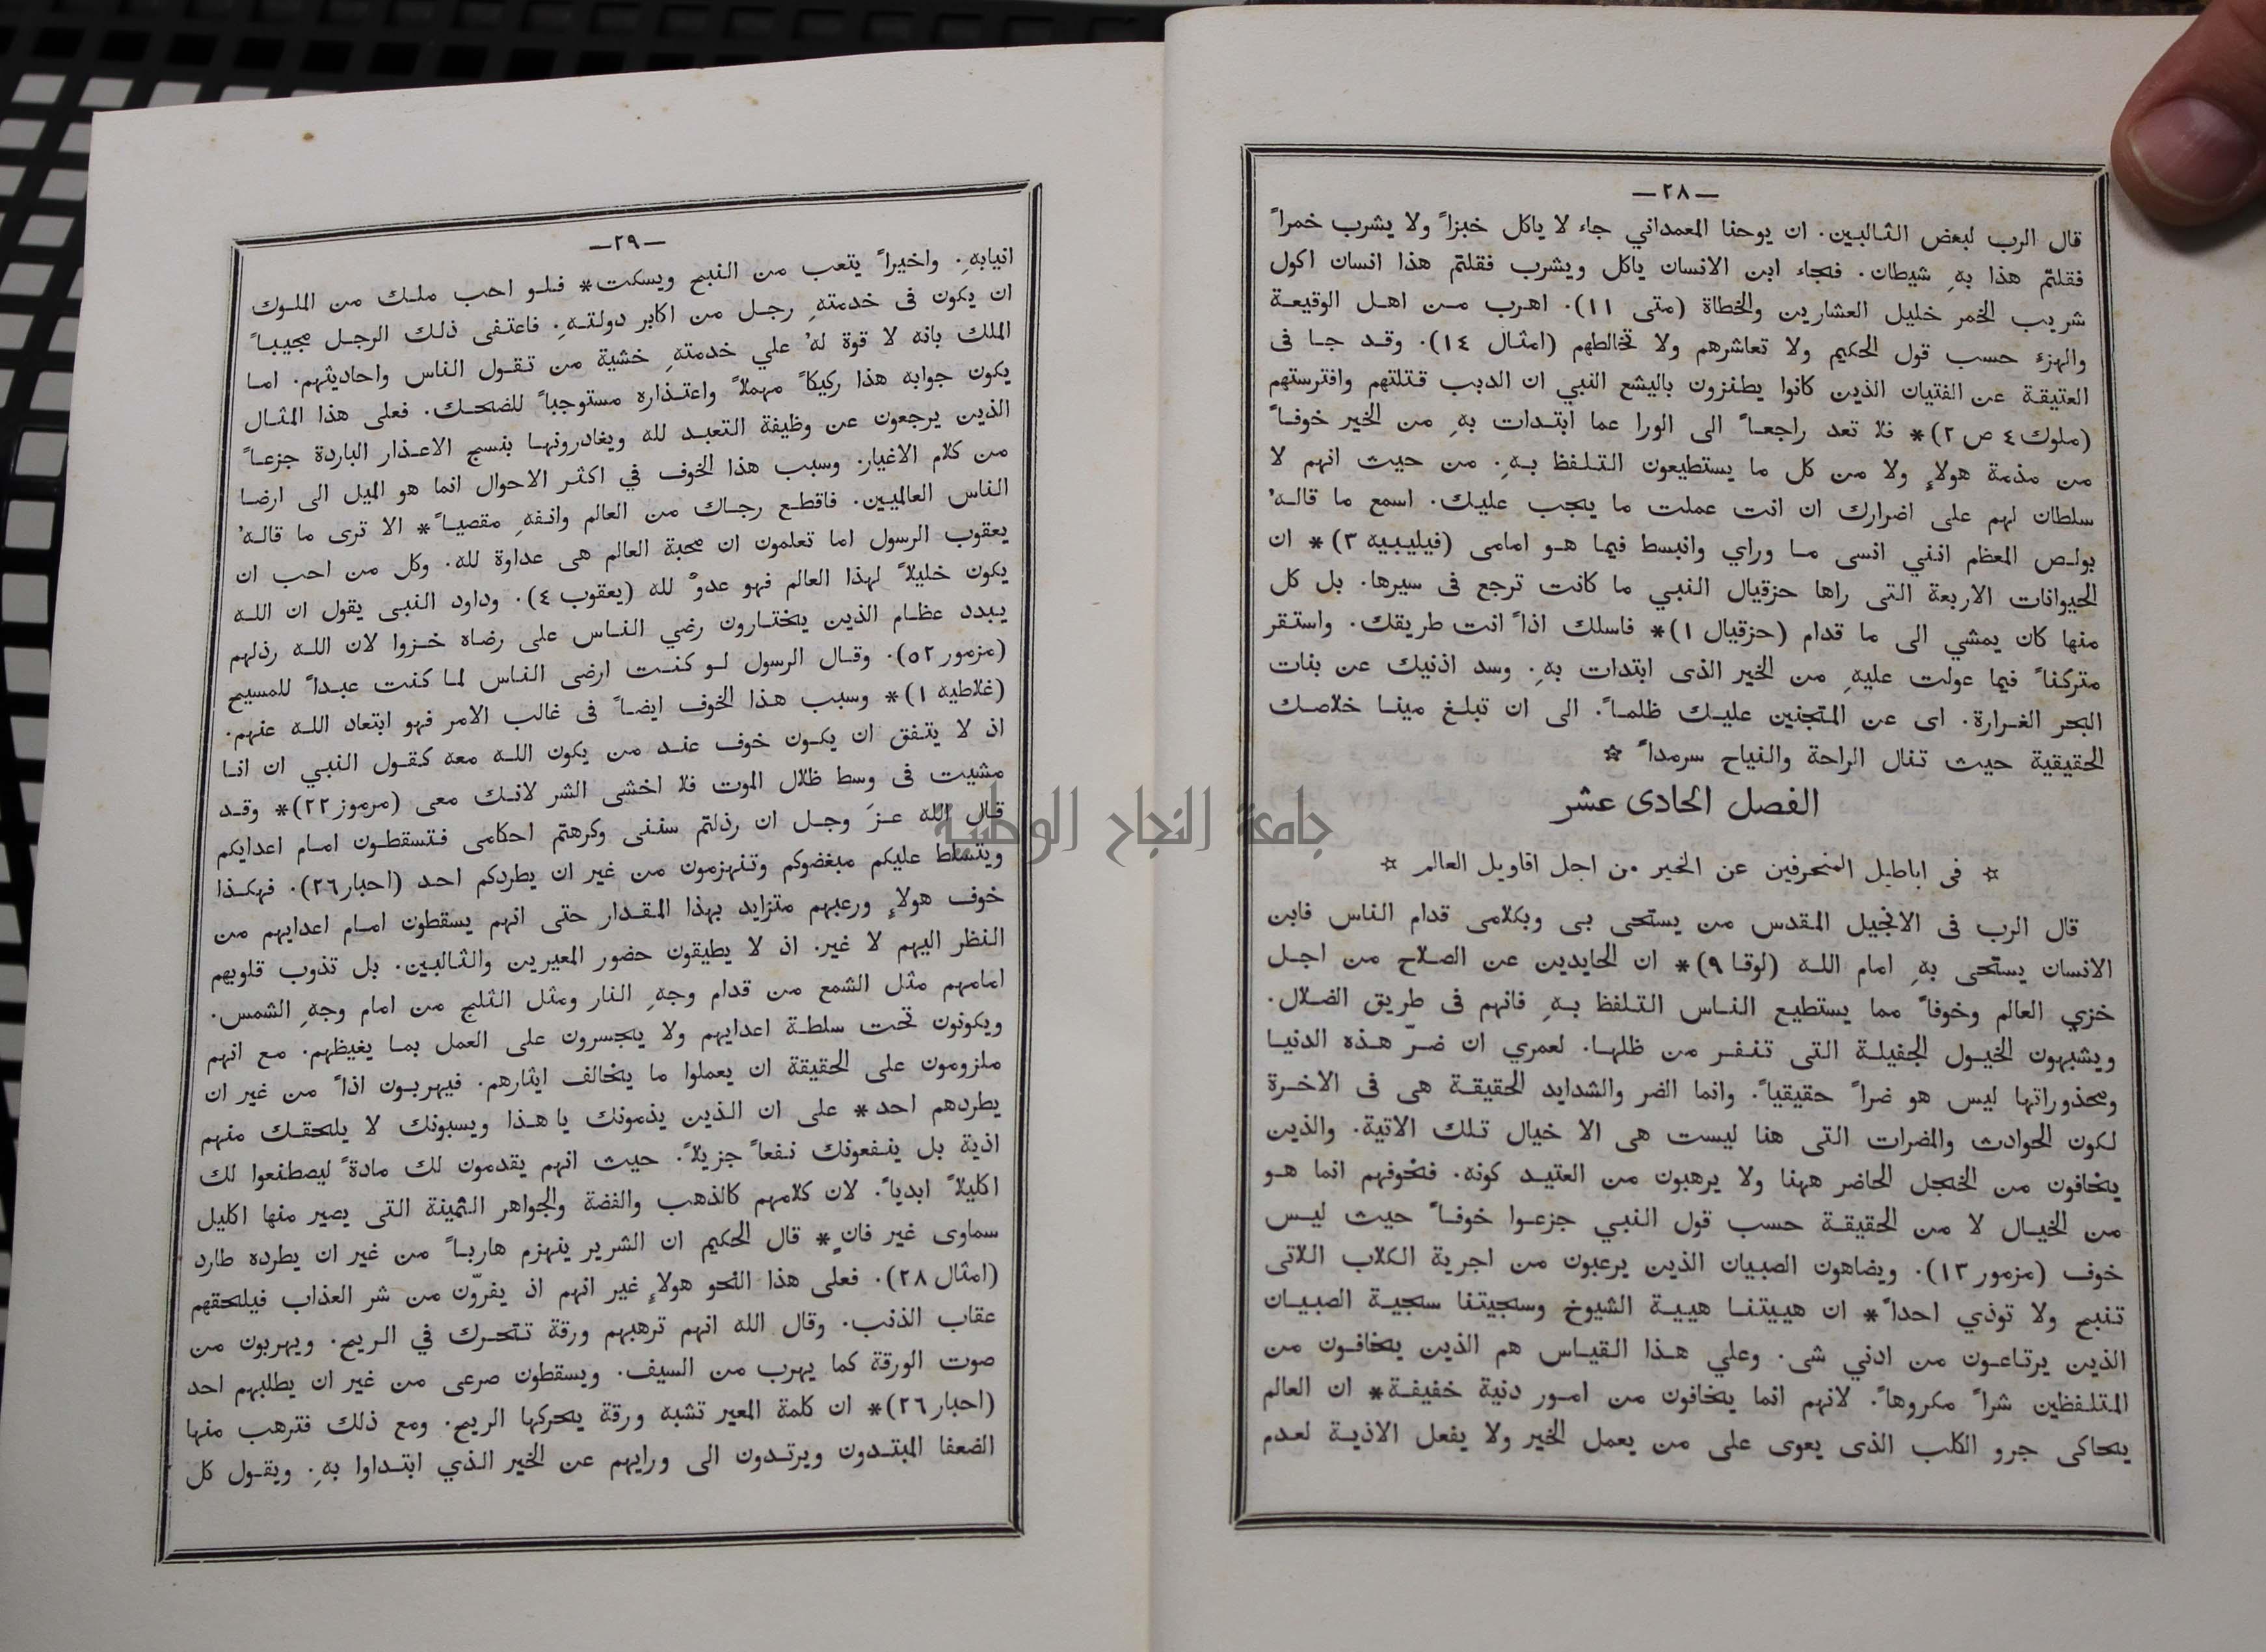 —٢٨—
قال الرب لبعض الثالبين. ان يوحنا المعمداني جاء لا ياكل خبزاً ولا يشرب خمراً
فقلتم هذا بهِ شيطان. فجاء ابن الانسان ياكل ويشرب فقلتم هذا انسان اكول
شريب الخمر خليل العشارين والخطاة (متى ١١). اهرب من اهل الوقيعة
والهزء حسب قول الحكيم ولا تعاشرهم ولا تخالطهم (امثال ١٤). وقد جا فى
العتيقة عن الفتيان الذين كانوا يطنزون باليشع النبي ان الدبب قتلتهم وافترستهم
(ملوك ٤ ص ٢)* فلا تعد راجعاً الى الورا عما ابتدات بهِ من الخير خوفاً
من مذمة هولاءِ ولا من كل ما يستطيعون التلفظ بهِ. من حيث انهم لا
سلطان لهم على اضرارك ان انت عملت ما يجب عليك. اسمع ما قالهُ
بولص المعظم اننى انسى ما وراي وانبسط فيما هو امامى (فيليبيه ٣)* ان
الحيوانات الاربعة التى راها حزقيال النبي ما كانت ترجع فى سيرها. بل كل
منها كان يمشي الى ما قدام (حزقيال ١)* فاسلك اذاً انت طريقك. واستقر
متركناً فيما عولت عليهِ من الخير الذى ابتدات بهِ. وسد اذنيك عن بنات
البحر الغرارة. اى عن المتجنين عليك ظلماً. الى ان تبلغ مينا خلاصك
الحقيقية حيث تنال الراحة والنياح سرمداً ☆
الفصل الحادى عشر
☆ فى اباطيل المنحرفين عن الخير من اجل اقاويل العالم ☆
قال الرب فى الانجيل المقدس من يستحى بى وبكلامى قدام الناس فابن
الانسان يستحى بهِ امام الله (لوقا ٩)* ان الحايدين عن الصلاح من اجل
خزي العالم وخوفاً مما يستطيع الناس التلفظ بهِ فانهم فى طريق الضلال.
ويشبهون الخيول الجفيلة التى تنفر من ظلها. لعمري ان ضرّ هذه الدنيا
ومحذوراتها ليس هو ضراً حقيقياً. وانما الضر والشدايد الحقيقة هى فى الاخرة
لكون الحوادث والمضرات التى هنا ليست هى الا خيال تلك الاتية. والذين
يخافون من الخجل الحاضر ههنا ولا يرهبون من العتيد كونه. فخوفهم انما هو
من الخيال لا من الحقيقة حسب قول النبي جزعوا خوفاً حيث ليس
خوف (مزمور ١٣). ويضاهون الصبيان الذين يرعبون من اجرية الكلاب اللاتى
تنبح ولا توذي احداً* ان هييتنا هيية الشيوخ وسجيتنا سجية الصبيان
الذين يرتاعون من ادني شى. وعلي هذا القياس هم الذين يخافون من
المتلفظين شراً مكروهاً. لانهم انما يخافون من امور دنية خفيفة* ان العالم
يحاكى جرو الكلب الذى يعوى على من يعمل الخير ولا يفعل الاذية لعدم
—٢٩—
انيابهِ. واخيراً يتعب من النبح ويسكت* فلو احب ملك من الملوك
ان يكون فى خدمتهِ رجل من اكابر دولتهِ. فاعتفى ذلك الرجل مجيباً
الملك بانه لا قوة لهُ علي خدمتهِ خشية من تقول الناس واحاديثهم. اما
يكون جوابه هذا ركيكاً مهملاً واعتذاره مستوجباً للضحك. فعلى هذا المثال
الذين يرجعون عن وظيفة التعبد لله ويغادرونها بنسج الاعذار الباردة جزعاً
من كلام الاغيار. وسبب هذا الخوف في اكثر الاحوال انما هو الميل الى ارضا
الناس العالميين. فاقطع رجاك من العالم وانفهِ مقصياً* الا ترى ما قالهُ
يعقوب الرسول اما تعلمون ان محبة العالم هى عداوة لله. وكل من احب ان
يكون خليلاً لهذا العالم فهو عدوٌ لله (يعقوب ٤). وداود النبى يقول ان الله
يبدد عظام الذين يختارون رضي الناس على رضاه خزوا لان الله رذلهم
(مزمور ٥٢). وقال الرسول لو كنت ارضى الناس لما كنت عبداً للمسيح
(غلاطيه ١)* وسبب هذا الخوف ايضاً فى غالب الامر فهو ابتعاد الله عنهم.
اذ لا يتفق ان يكون خوف عند من يكون الله معه كقول النبي ان انا
مشيت فى وسط ظلال الموت فلا اخشى الشر لانك معى (مرموز ٢٢)* وقد
قال الله عزَ وجل ان رذلتم سننى وكرهتم احكامى فتسقطون امام اعدايكم
ويتسلط عليكم مبغضوكم وتنهزمون من غير ان يطردكم احد (احبار ٢٦). فهكذا
خوف هولاءِ ورعبهم متزايد بهذا المقدار حتى انهم يسقطون امام اعدايهم من
النظر اليهم لا غير. اذ لا يطيقون حضور المعيرين والثالبين. بل تذوب قلوبهم
امامهم مثل الشمع من قدام وجهِ النار ومثل الثلج من امام وجهِ الشمس.
ويكونون تحت سلطة اعدايهم ولا يجسرون على العمل بما يغيظهم. مع انهم
ملزومون على الحقيقة ان يعملوا ما يخالف ايثارهم. فيهربون اذاً من غير ان
يطردهم احد* على ان الذين يذمونك يا هذا ويسبونك لا يلحقك منهم
اذية بل ينفعونك نفعاً جزيلاً. حيث انهم يقدمون لك مادةً ليصطنعوا لك
اكليلاً ابدياً. لان كلامهم كالذهب والفضة والجواهر الثمينة التى يصير منها اكليل
سماوى غير فانٍ* قال الحكيم ان الشرير ينهزم هارباً من غير ان يطرده طارد
(امثال ٢٨). فعلى هذا النحو هولاءِ غير انهم اذ يفرّون من شر العذاب فيلحقهم
عقاب الذنب. وقال الله انهم ترهبهم ورقة تتحرك في الريح. ويهربون من
صوت الورقة كما يهرب من السيف. ويسقطون صرعى من غير ان يطلبهم احد
(احبار ٢٦)* ان كلمة المعير تشبه ورقة يحركها الريح. ومع ذلك فترهب منها
الضعفا المبتدون ويرتدون الى ورايهم عن الخير الذي ابتداوا بهِ. ويقول كل
جامعة النجاح الوطنية